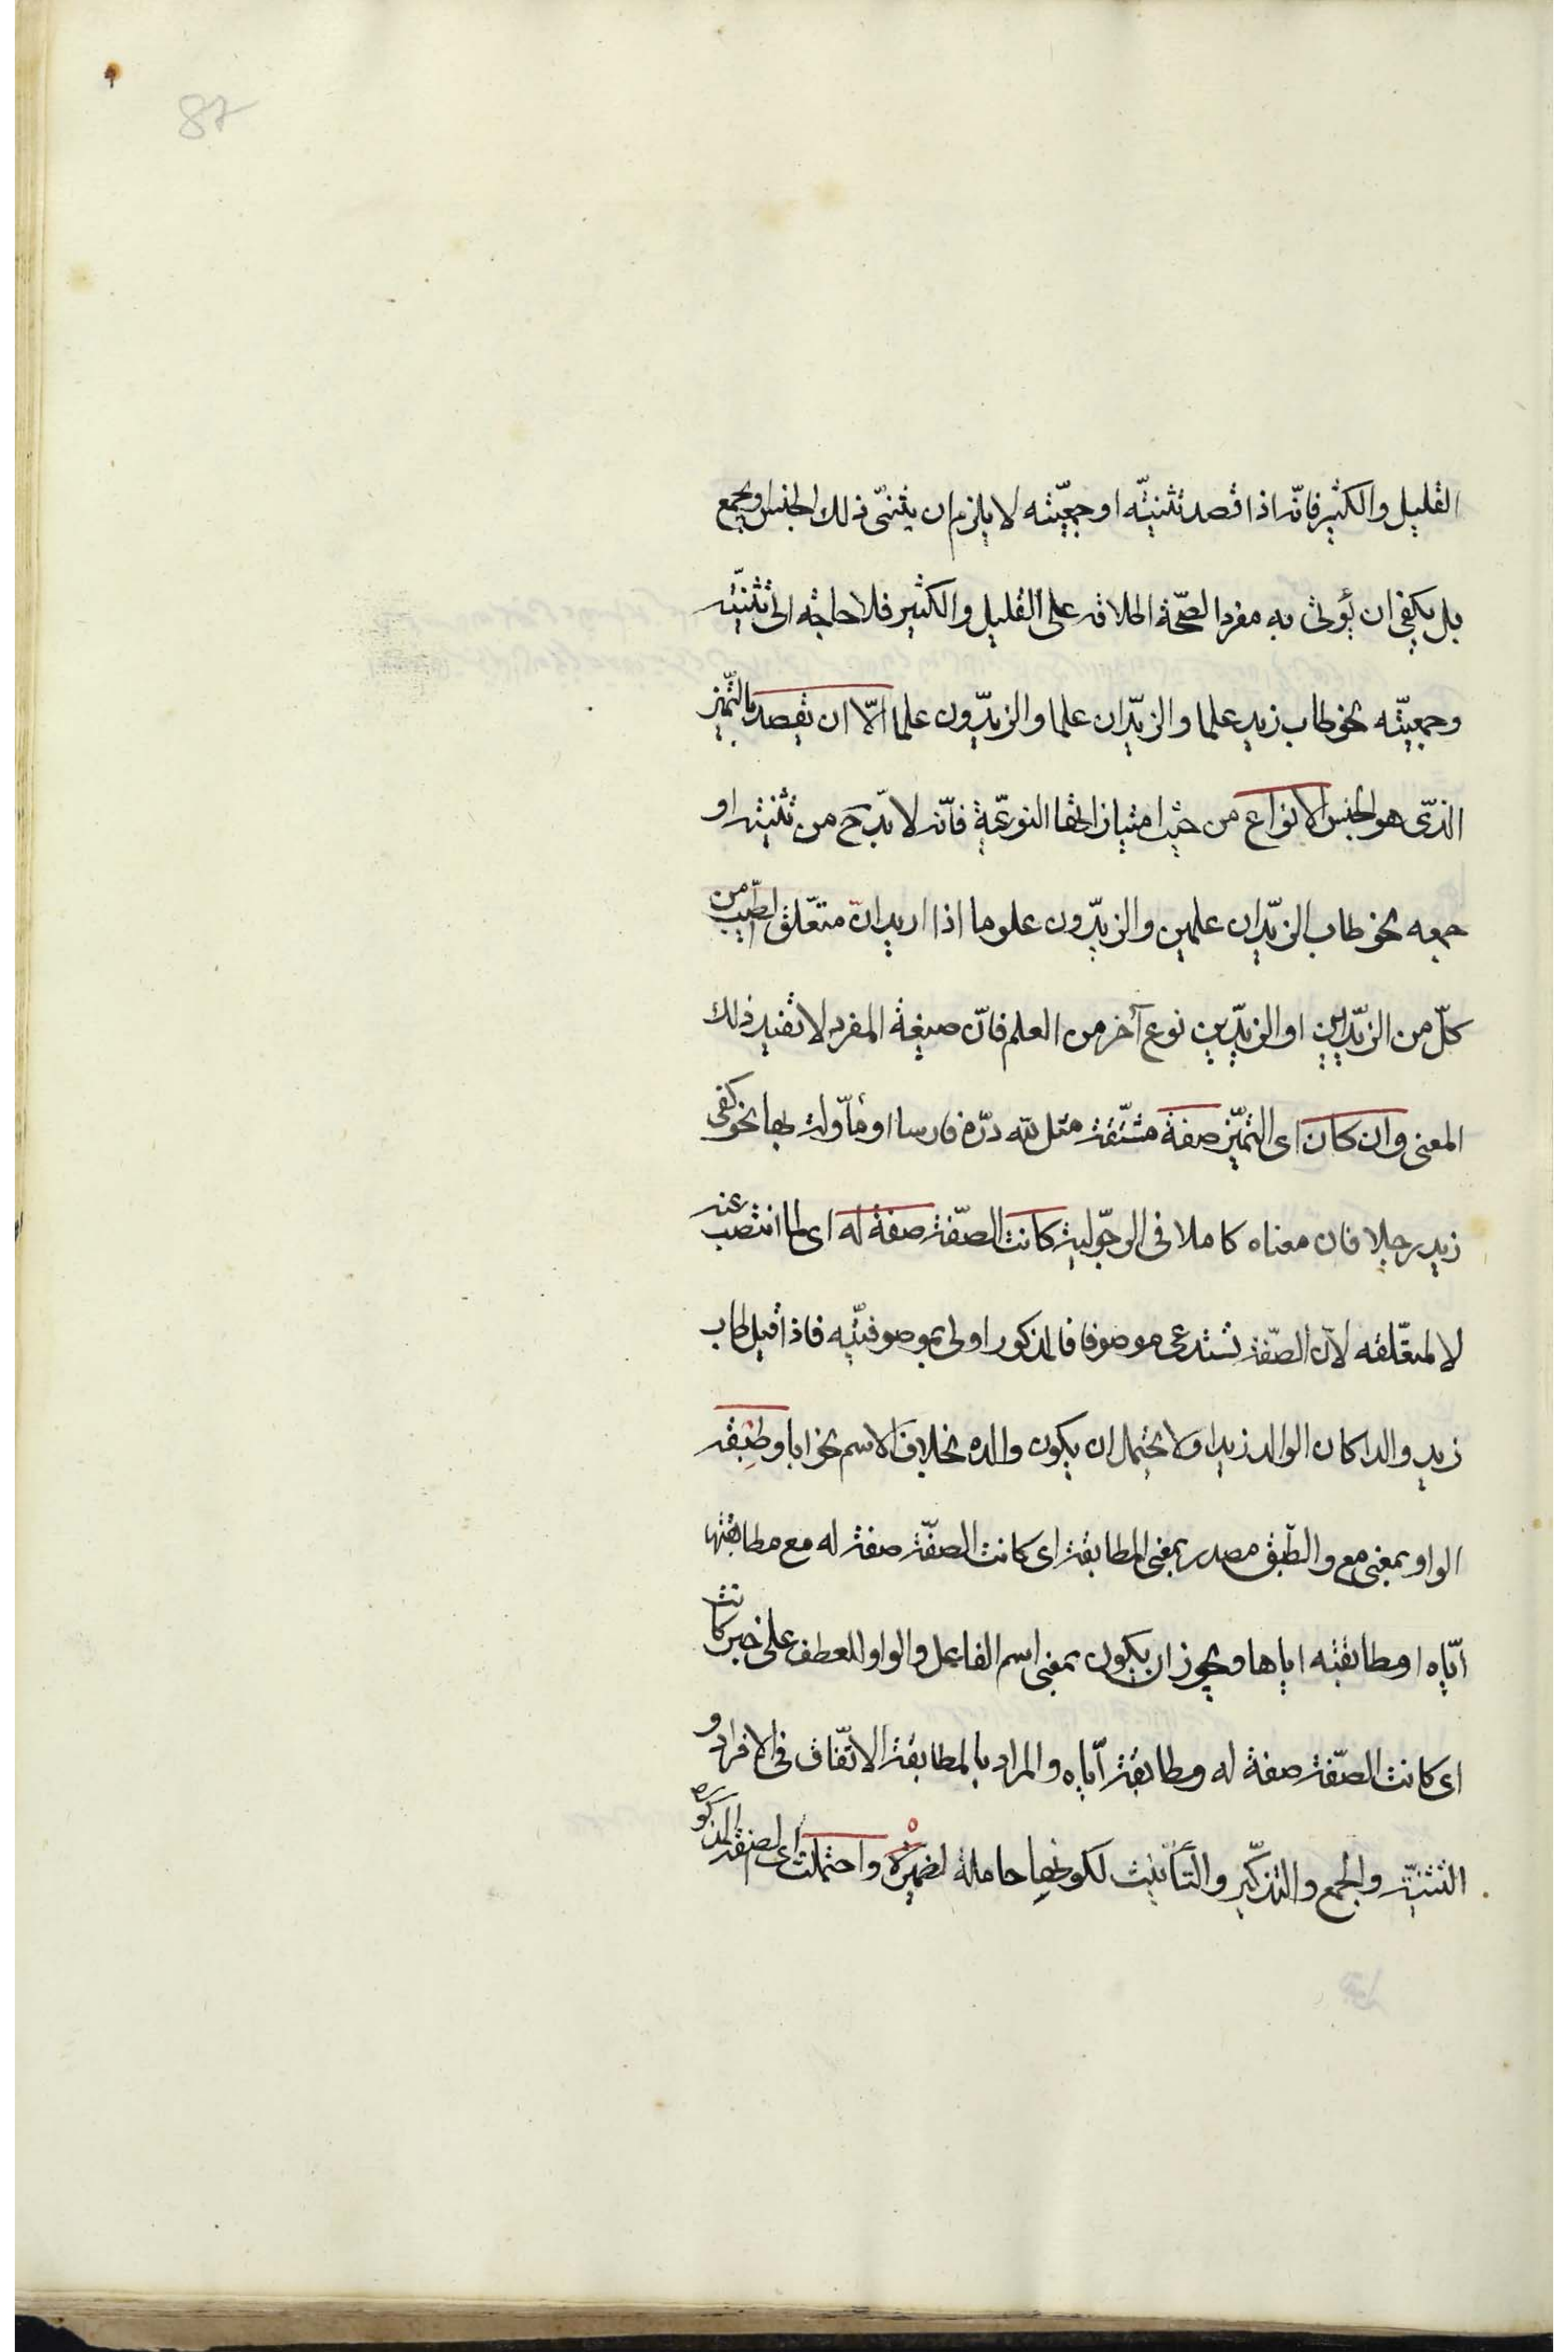 87
القليل والكثير فانّه اذا قصد تثنيته او جمعيّته لا يلزم ان يثنّى ذلك الجنس ويجمع
بل يكفى ان يؤتى به مفردا لصحّة اطلاقه على القليل والكثير فلا حاجة الى تثنيته
وجمعيّته نحو طاب زيد علما والزيدان علما والزيدون علما الّا ان يقصد بالتميّز
الذى هو الجنس الانواع من حيث امتيازاتها النوعيّة فانّه لا بدّ ح من تثنيته او
جمعه نحو طاب الزيدان علمين والزيدون علوما اذا اريد انّ متعلّق الطيب من
كلّ من الزيدين او الزيدين نوع آخر من العلم فانّ صيغة المفرد لا تفيد ذلك
المعنى وان كان اى التميّز صفة مشتقّة مثل لله درّه فارسا او مأوّلة بها نحو كفى
زيد رجلا فان معناه كاملا فى الرجّولية كانت الصّفة صفة له اى لما انتصب عنه
لا لمتعلّقه لانّ الصّفة تستدعى موصوفا فالمذكور اولى بموصوفيّته فاذا قيل طاب
زيد والدا كان الوالد زيدا ولا يحتمل ان يكون والده بخلاف الاسم نحو ابا وطبقه
الواو بمعنى مع والطّبق مصدر بمعنى المطابقة اى كانت الصفّة صفة له مع مطابقتها
ايّاه او مطابقته اياها ويجوز ان يكون بمعنى اسم الفاعل والواو للعطف على خبر كانت
اى كانت الصّفة صفة له ومطابقة ايّاه والمراد بالمطابقة الاتّفاق فى الافراد و
التثنيّة والجمع والتذكير والتأنيث لكونها حاملة لضميره واحتملت اى الصفة المذكورة